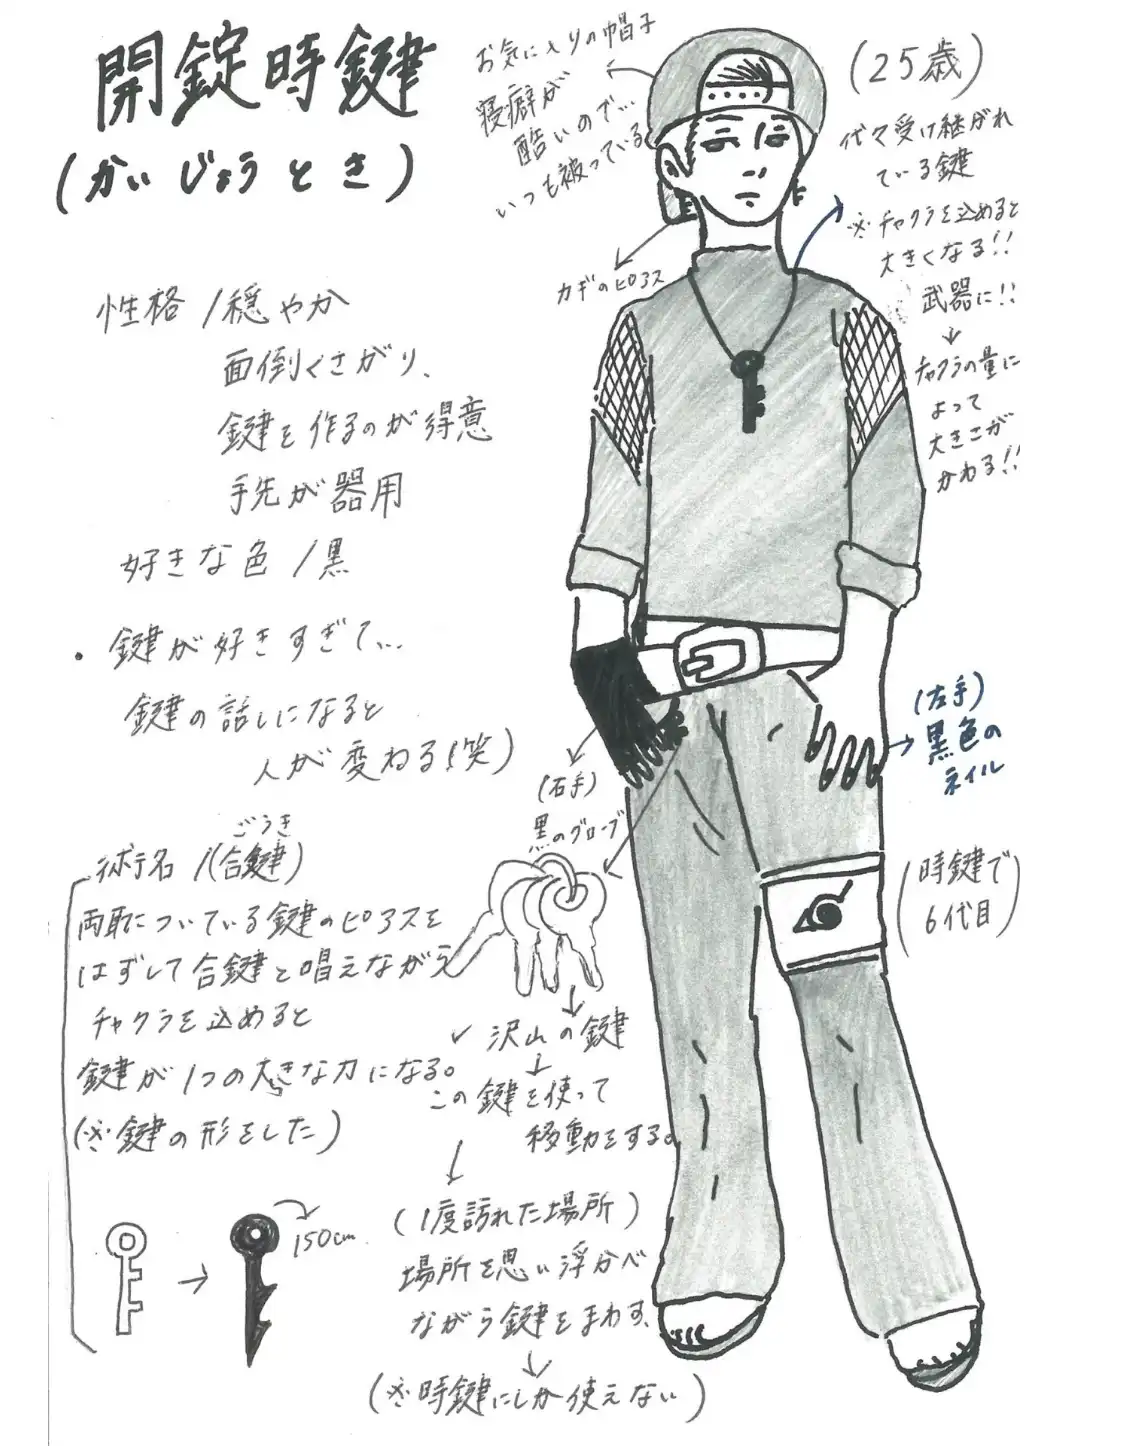 開錠時鍵
(かいじょうとき)
(25歳)
お気に入りの帽子
寝癖が
酷いので…
いつも被っている
代々受け継がれ
ている鍵
※チャクラを込めると
大きくなる!!
武器に!!
↓
チャクラの量に
よって
大きさが
かわる!!
カギのピアス
性格/穏やか
面倒くさがり、
鍵を作るのが得意
手先が器用
好きな色/黒
・鍵が好きすぎて…
鍵の話しになると
人が変わる!(笑)
(左手)
黒色の
ネイル
(右手)
黒のグローブ
(時鍵で
6代目)
ごうき
名/(合鍵)
についている鍵のピアスを
はずして合鍵と唱えながら
チャクラを込めると
鍵が1つの大きな刀になる。
(※鍵の形をした)
→
150cm
沢山の鍵
↓
この鍵を使って
移動をする。
↓
(1度訪れた場所)
場所を思い浮かべ
ながら鍵をまわす、
↓
(※時鍵にしか使えない)